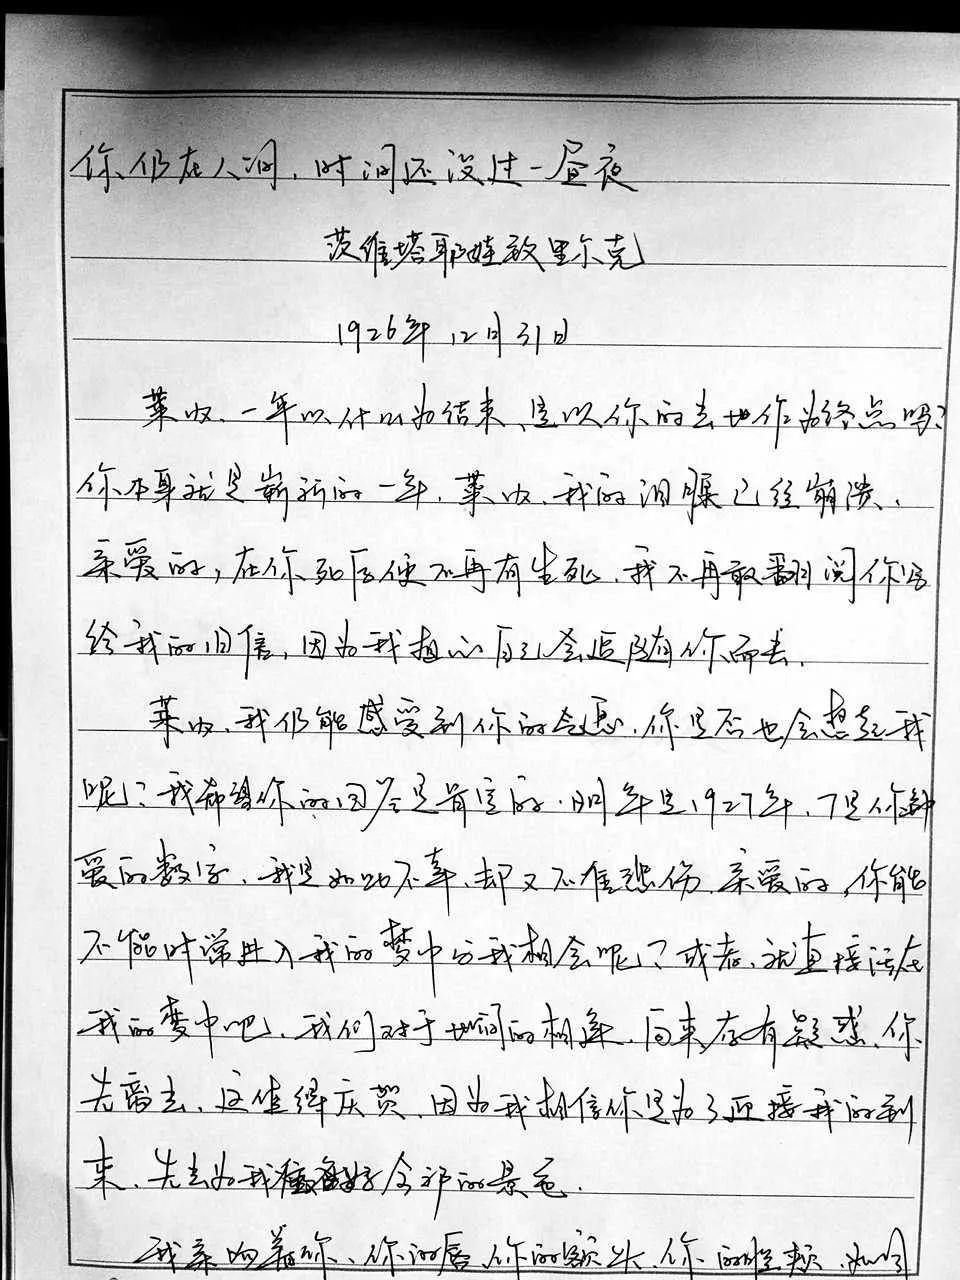 你仍在人间，时间还没过一昼夜
茨维塔耶娃致里尔克
1926年12月31日
莱内、一年以什么为结束、是以你的去世作为终点吗？
你本身就是崭新的一年．莱内、我的泪腺已经崩溃、
亲爱的，在你死后便不再有生死．我不再敢翻阅你写
给我的旧信，因为我担心自己会追随你而去．
莱内、我仍能感受到你的气息．你是否也会想起我
呢？我知道你的回答是肯定的．明年是1927年、7是你钟
爱的数字、我是如此不幸、却又不准悲伤．亲爱的，你能
不能时常进入我的梦中与我相会呢？或者、就直接活在
我的梦中吧、我们对于世间的相逢．向来存有疑惑．你
先离去、这值得庆贺、因为我相信你是为了迎接我的到
来、先去为我准备好全部的景色．
我亲吻着你、你的唇、你的额头、你的脸颊、如同